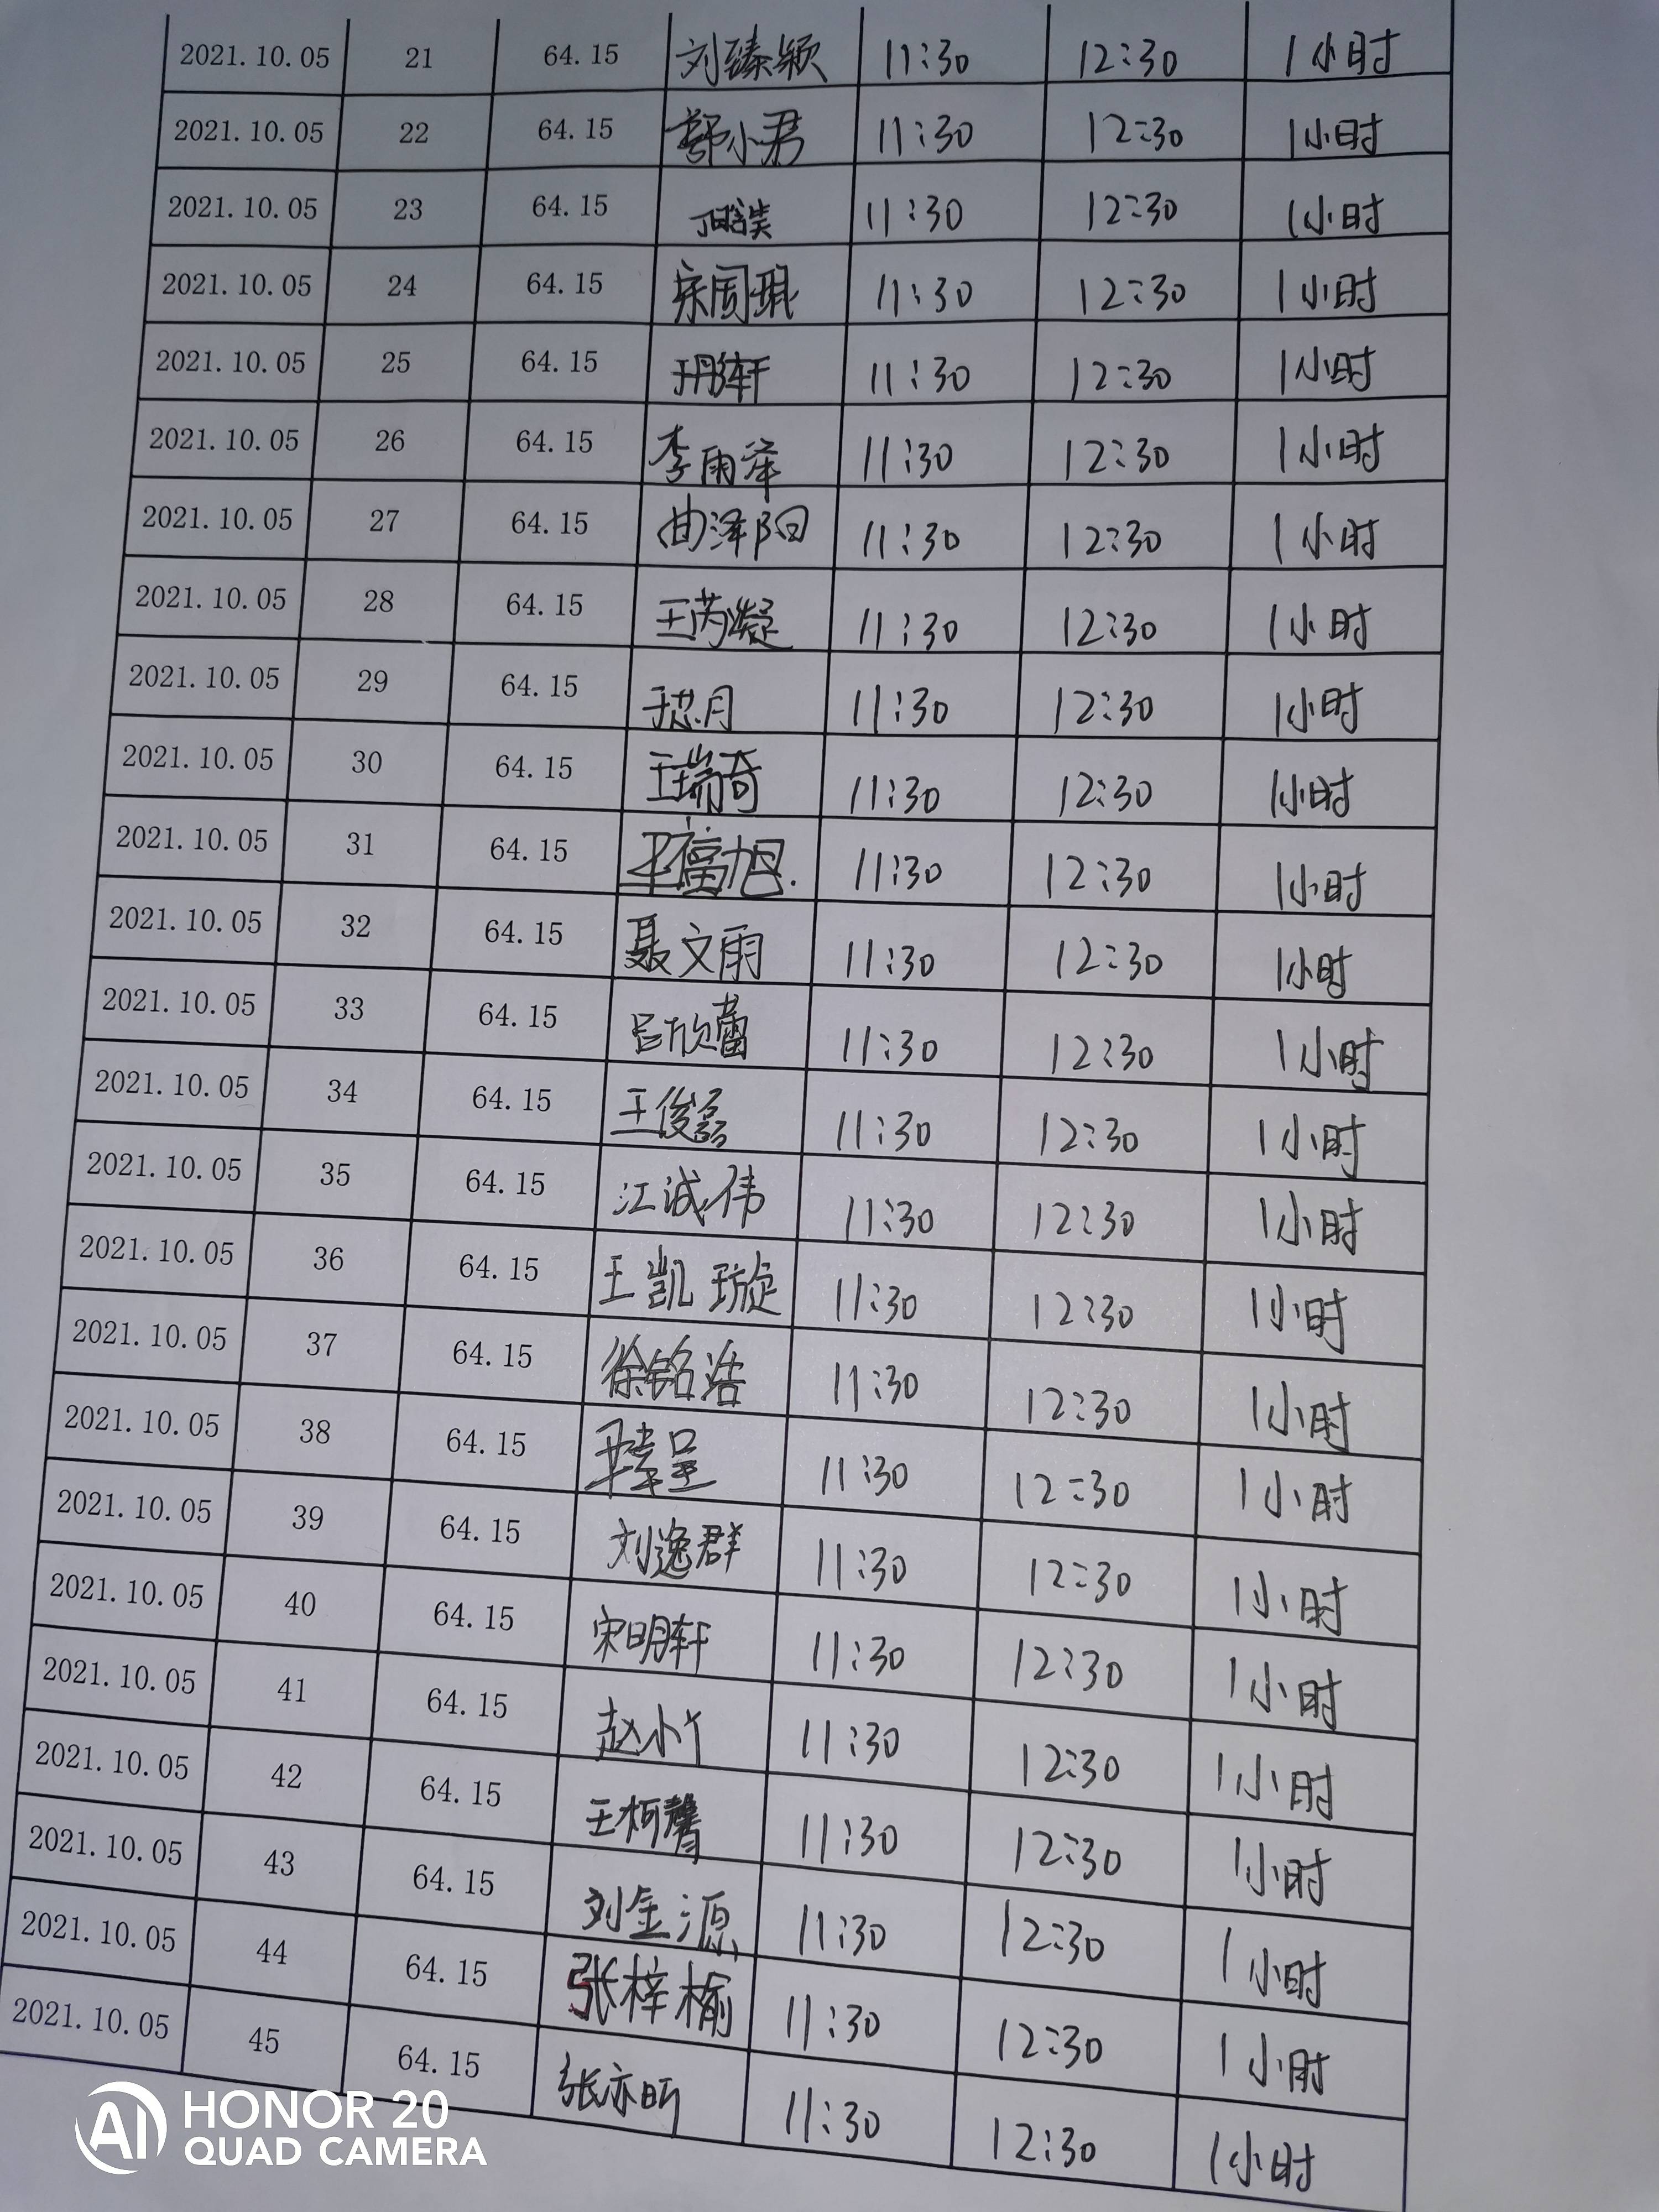 2021.10.05 21 64.15 刘臻颖 11:30 12:30 1小时
2021.10.05 22 64.15 鄢小君 11:30 12:30 1小时
2021.10.05 23 64.15 11:30 12:30 1小时
2021.10.05 24 64.15 11:30 12:30 1小时
2021.10.05 25 64.15 11:30 12:30 1小时
2021.10.05 26 64.15 李雨泽 11:30 12:30 1小时
2021.10.05 27 64.15 曲泽阳 11:30 12:30 1小时
2021.10.05 28 64.15 王芮凝 11:30 12:30 1小时
2021.10.05 29 64.15 11:30 12:30 1小时
2021.10.05 30 64.15 王瑞奇 11:30 12:30 1小时
2021.10.05 31 64.15 11:30 12:30 1小时
2021.10.05 32 64.15 聂文雨 11:30 12:30 1小时
2021.10.05 33 64.15 吕欣蕾 11:30 12:30 1小时
2021.10.05 34 64.15 王俊磊 11:30 12:30 1小时
2021.10.05 35 64.15 江诚伟 11:30 12:30 1小时
2021.10.05 36 64.15 王凯璇 11:30 12:30 1小时
2021.10.05 37 64.15 徐铭浩 11:30 12:30 1小时
2021.10.05 38 64.15 11:30 12:30 1小时
2021.10.05 39 64.15 刘逸群 11:30 12:30 1小时
2021.10.05 40 64.15 宋明轩 11:30 12:30 1小时
2021.10.05 41 64.15 11:30 12:30 1小时
2021.10.05 42 64.15 王柯馨 11:30 12:30 1小时
2021.10.05 43 64.15 刘金源 11:30 12:30 1小时
2021.10.05 44 64.15 张梓榆 11:30 12:30 1小时
2021.10.05 45 64.15 张亦昕 11:30 12:30 1小时
AI HONOR 20
QUAD CAMERA